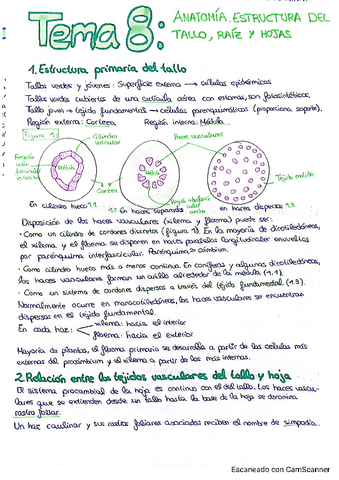 Tema 8:
ANATOMÍA. ESTRUCTURA DEL
TALLO, RAÍZ Y HOJAS
1. Estructura primaria del tallo
Tallos verdes y jóvenes: Superficie externa → células epidérmicas
Tallos verdes cubiertos de una cutícula cérea con estomas, son fotosintéticos.
Tallo joven → tejido fundamental → células parenquimáticas (proporciona soporte).
Región externa: Corteza Región interna: Médula
Figura 1
Cilindro vascular
Haces vasculares
Región
Médula
Médula
Corteza
Tejido
En cilindro hueco 1.1
1.2 En haces separados
en haces dispersos 1.3
Disposición de los haces vasculares (xilema y floema) puede ser:
· Como un cilindro de cordones discretos (figura 1). En la mayoría de dicotiledóneas,
el xilema y el floema se disponen en haces paralelos longitudinales envueltos
por parénquima interfascicular. Parénquima = cámbium.
· Como cilindro hueco más o menos continuo. En coníferas y algunas dicotiledóneas,
los haces vasculares forman un anillo alrededor de la médula (1.1).
· Como un sistema de cordones dispersos a través del tejido fundamental. (1.3).
Normalmente ocurre en monocotiledóneas, los haces vasculares se encuentran
dispersos en el tejido fundamental.
En cada haz: xilema: hacia el interior
floema: hacia el exterior
Mayoría de plantas, el floema primario se desarrolla a partir de las células más
externas del procámbium y el xilema a partir de las más internas.
2. Relación entre los tejidos vasculares del tallo y hoja
El sistema procambial de la hoja es continuo con el del tallo. Los haces vascu-
lares que se extienden desde un tallo hasta la base de la hoja se denomina
rastro foliar.
Un haz caulinar y sus rastros foliares asociados reciben el nombre de simpodio.
Escaneado con CamScanner